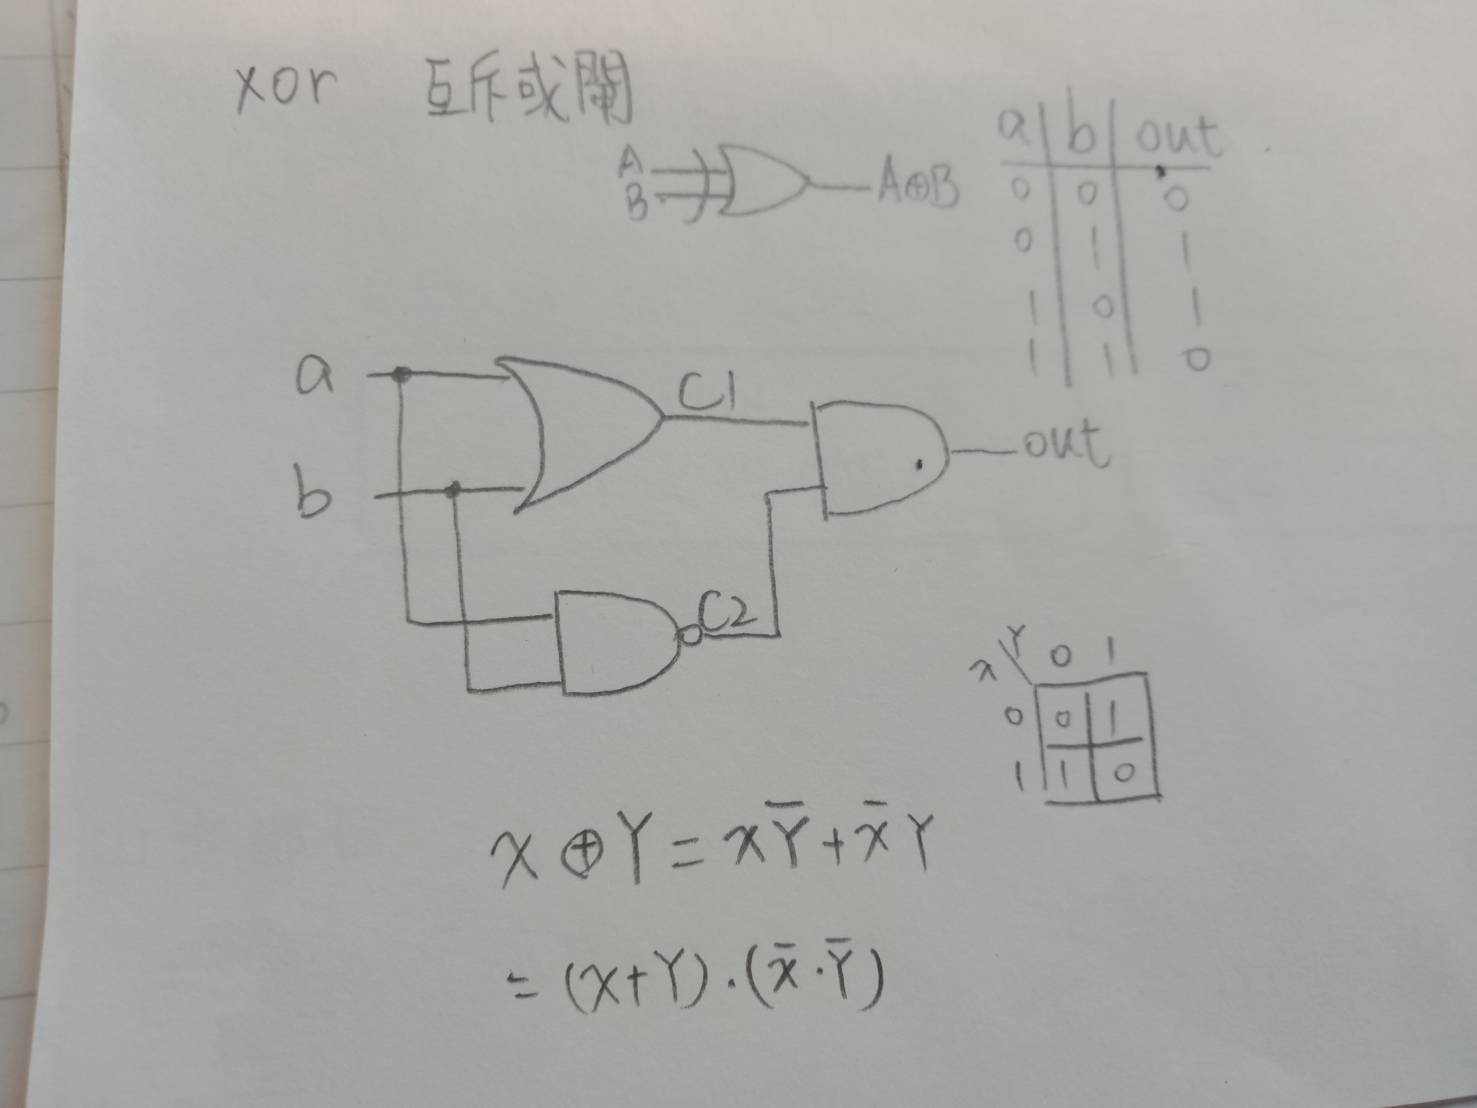 xor 互斥或閘
A
B
A⊕B
a b out
0 0 0
0 1 1
1 0 1
1 1 0
a
b
C1
C2
out
Y 0 1
x
0 0 1
1 1 0
X ⊕ Y = xȲ + x̄Y
= (X+Y)·(x̄·Ȳ)